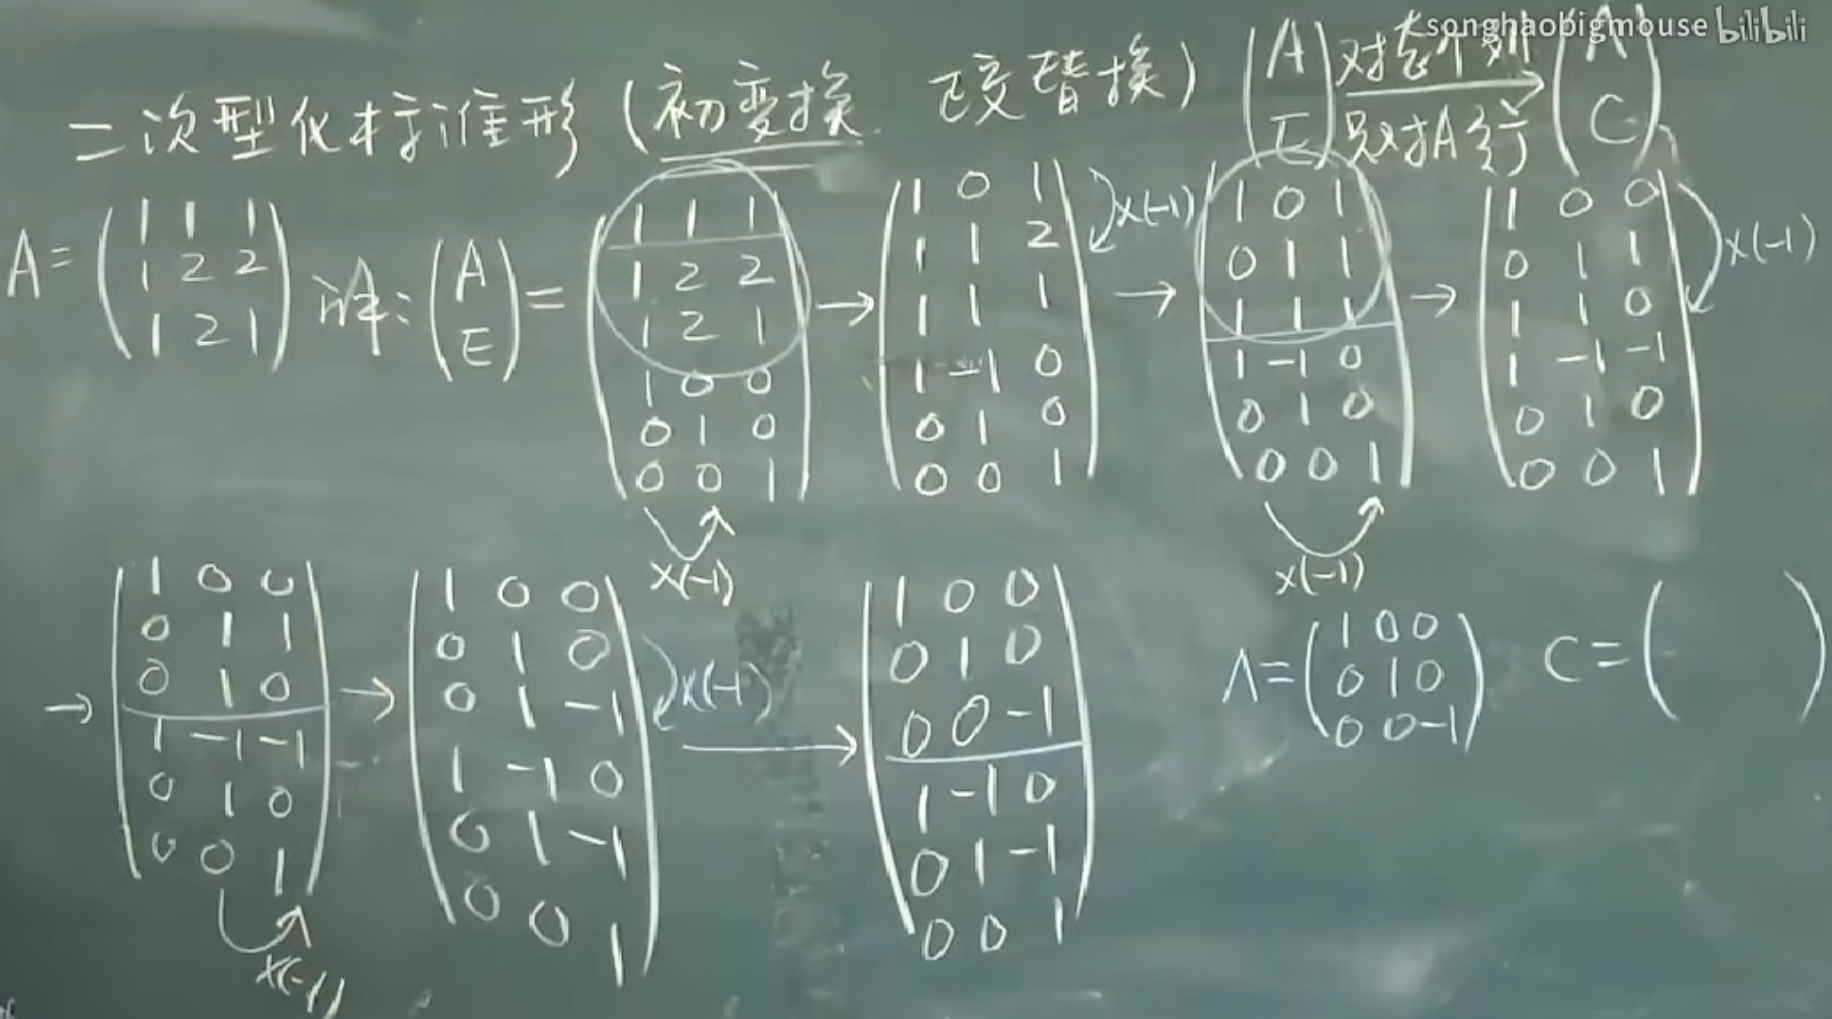 songhaobigmouse bilibili
二次型化标准形 (初变换 E变替换) (A E) 对整个列 只对A行 (A C)
A= (1 1 1 1 2 2 1 2 1) 解: (A E) = (1 1 1 1 2 2 1 2 1 1 0 0 0 1 0 0 0 1) → (1 0 1 1 1 2 1 1 1 1 -1 0 0 1 0 0 0 1) x(-1) → (1 0 1 0 1 1 1 1 1 1 -1 0 0 1 0 0 0 1) → (1 0 0 0 1 1 1 1 0 1 -1 -1 0 1 0 0 0 1) x(-1)
x(-1) x(-1)
→ (1 0 0 0 1 1 0 1 0 1 -1 -1 0 1 0 0 0 1) → (1 0 0 0 1 0 0 1 -1 1 -1 0 0 1 -1 0 0 1) x(-1) → (1 0 0 0 1 0 0 0 -1 1 -1 0 0 1 -1 0 0 1) Λ= (1 0 0 0 1 0 0 0 -1) C= ( )
x(-1)